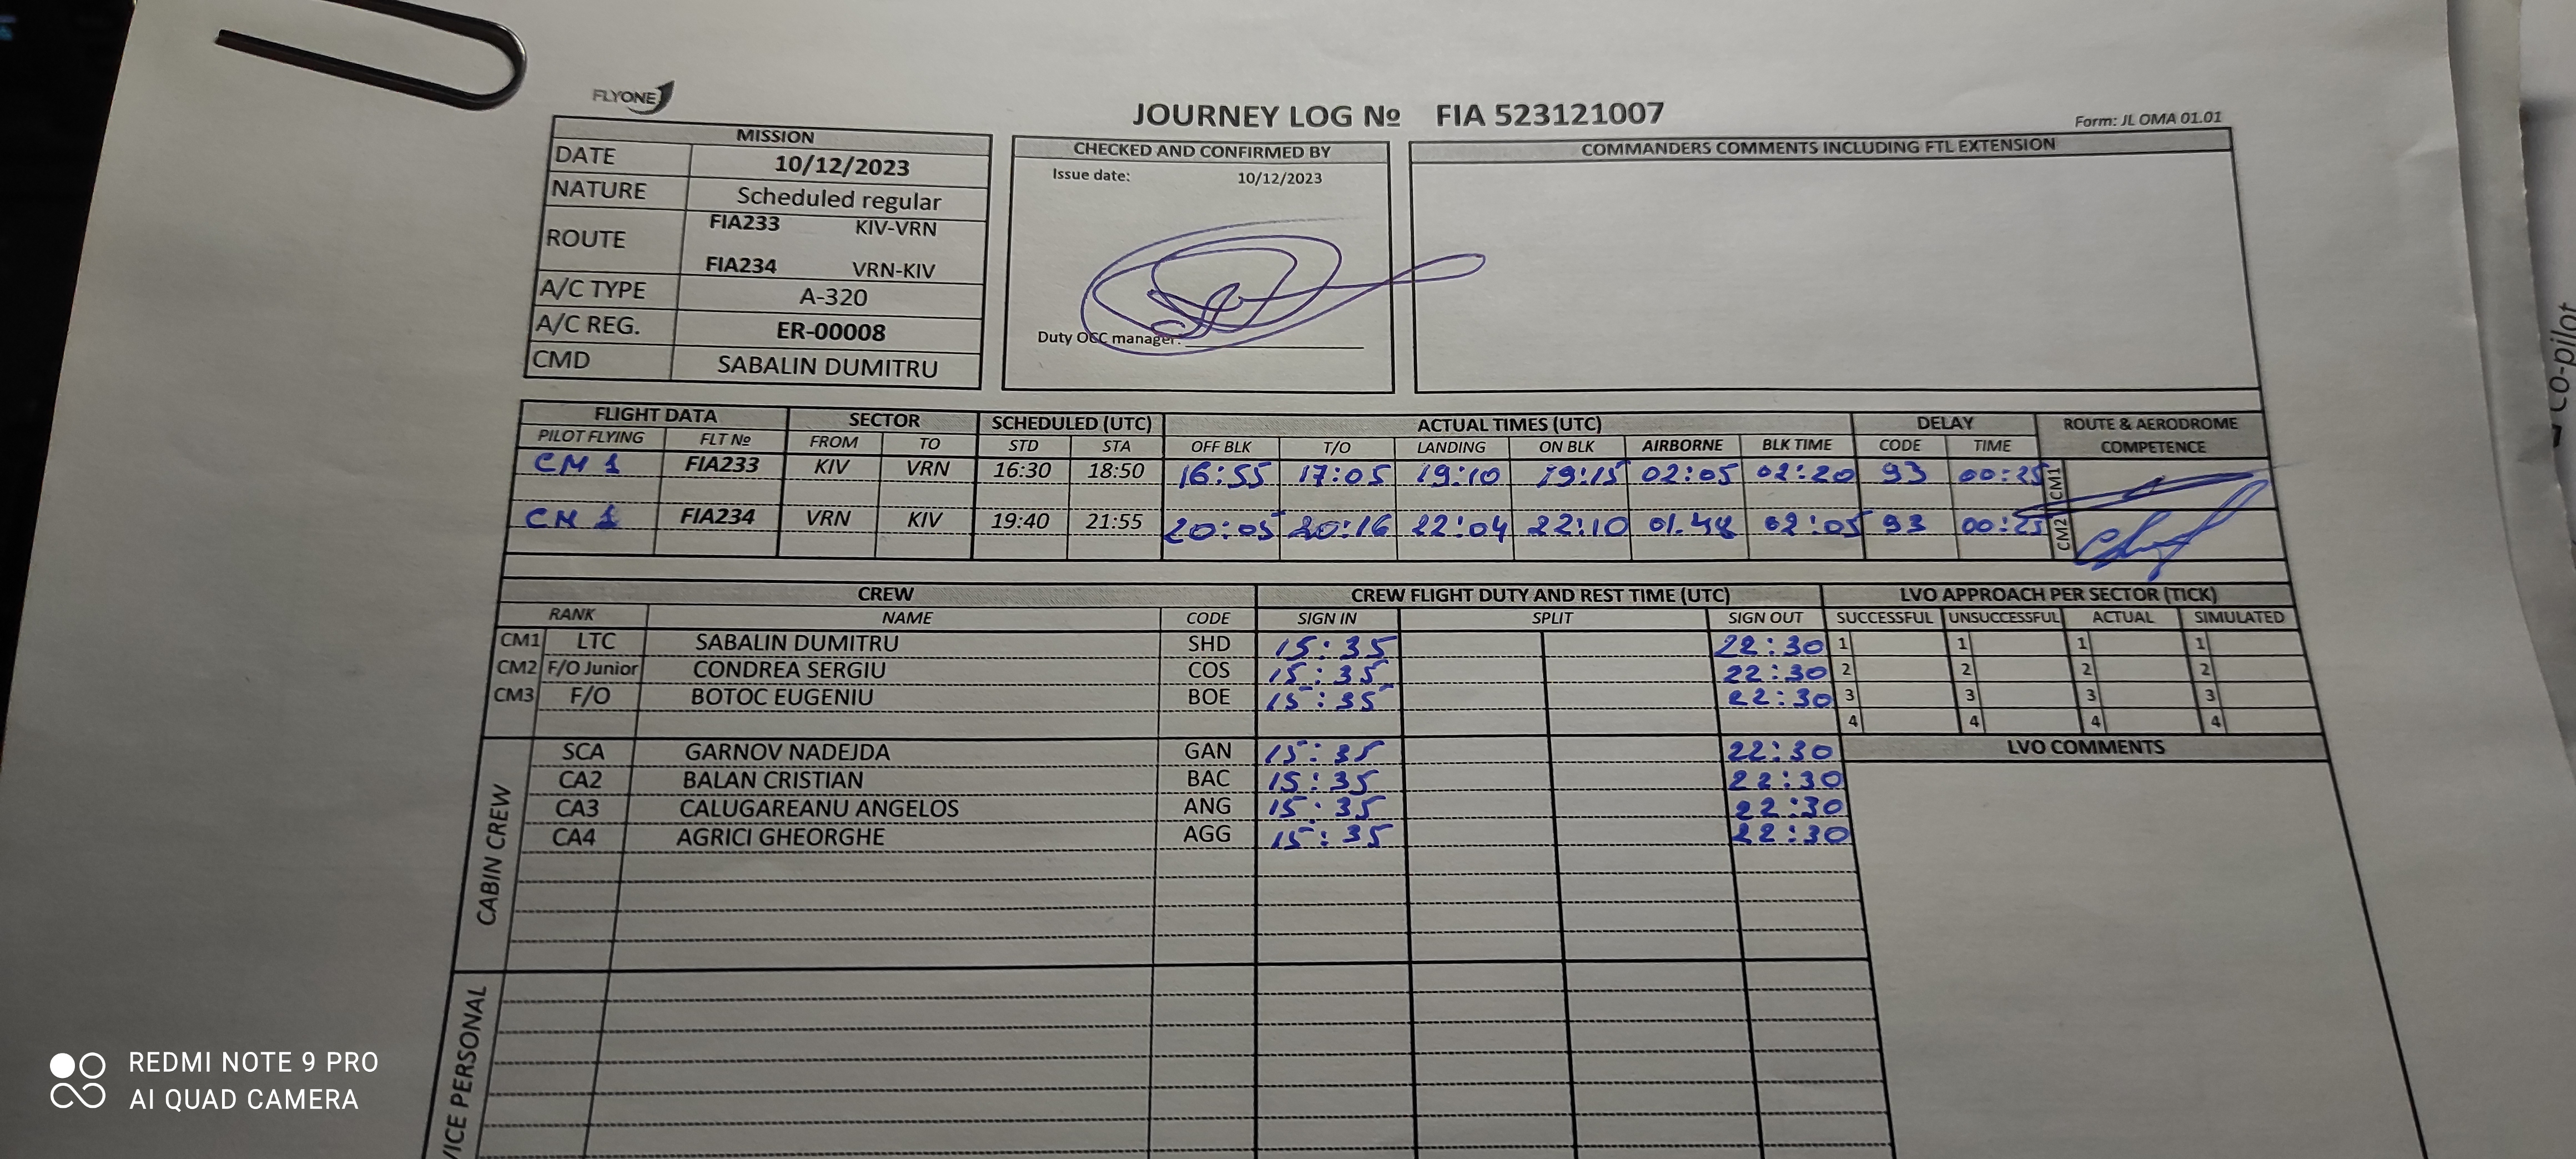 FLYONE
JOURNEY LOG № FIA 523121007
Form: JL OMA 01.01
MISSION
DATE 10/12/2023
NATURE Scheduled regular
ROUTE FIA233 KIV-VRN
FIA234 VRN-KIV
A/C TYPE A-320
A/C REG. ER-00008
CMD SABALIN DUMITRU
CHECKED AND CONFIRMED BY
Issue date: 10/12/2023
Duty OCC manager:
COMMANDERS COMMENTS INCLUDING FTL EXTENSION
FLIGHT DATA SECTOR SCHEDULED (UTC) ACTUAL TIMES (UTC) DELAY ROUTE & AERODROME COMPETENCE
PILOT FLYING FLT № FROM TO STD STA OFF BLK T/O LANDING ON BLK AIRBORNE BLK TIME CODE TIME
CM 1 FIA233 KIV VRN 16:30 18:50 16:55 17:05 19:10 19:15 02:05 02:20 93 00:25 CM1
CM 1 FIA234 VRN KIV 19:40 21:55 20:05 20:16 22:04 22:10 01.48 02:05 93 00:25 CM2
CREW CREW FLIGHT DUTY AND REST TIME (UTC) LVO APPROACH PER SECTOR (TICK)
RANK NAME CODE SIGN IN SPLIT SIGN OUT SUCCESSFUL UNSUCCESSFUL ACTUAL SIMULATED
CM1 LTC SABALIN DUMITRU SHD 15:35 22:30 1 1 1 1
CM2 F/O Junior CONDREA SERGIU COS 15:35 22:30 2 2 2 2
CM3 F/O BOTOC EUGENIU BOE 15:35 22:30 3 3 3 3
4 4 4 4
CABIN CREW
SCA GARNOV NADEJDA GAN 15:35 22:30
CA2 BALAN CRISTIAN BAC 15:35 22:30
CA3 CALUGAREANU ANGELOS ANG 15:35 22:30
CA4 AGRICI GHEORGHE AGG 15:35 22:30
LVO COMMENTS
VICE PERSONAL
Co-pilot
REDMI NOTE 9 PRO
AI QUAD CAMERA